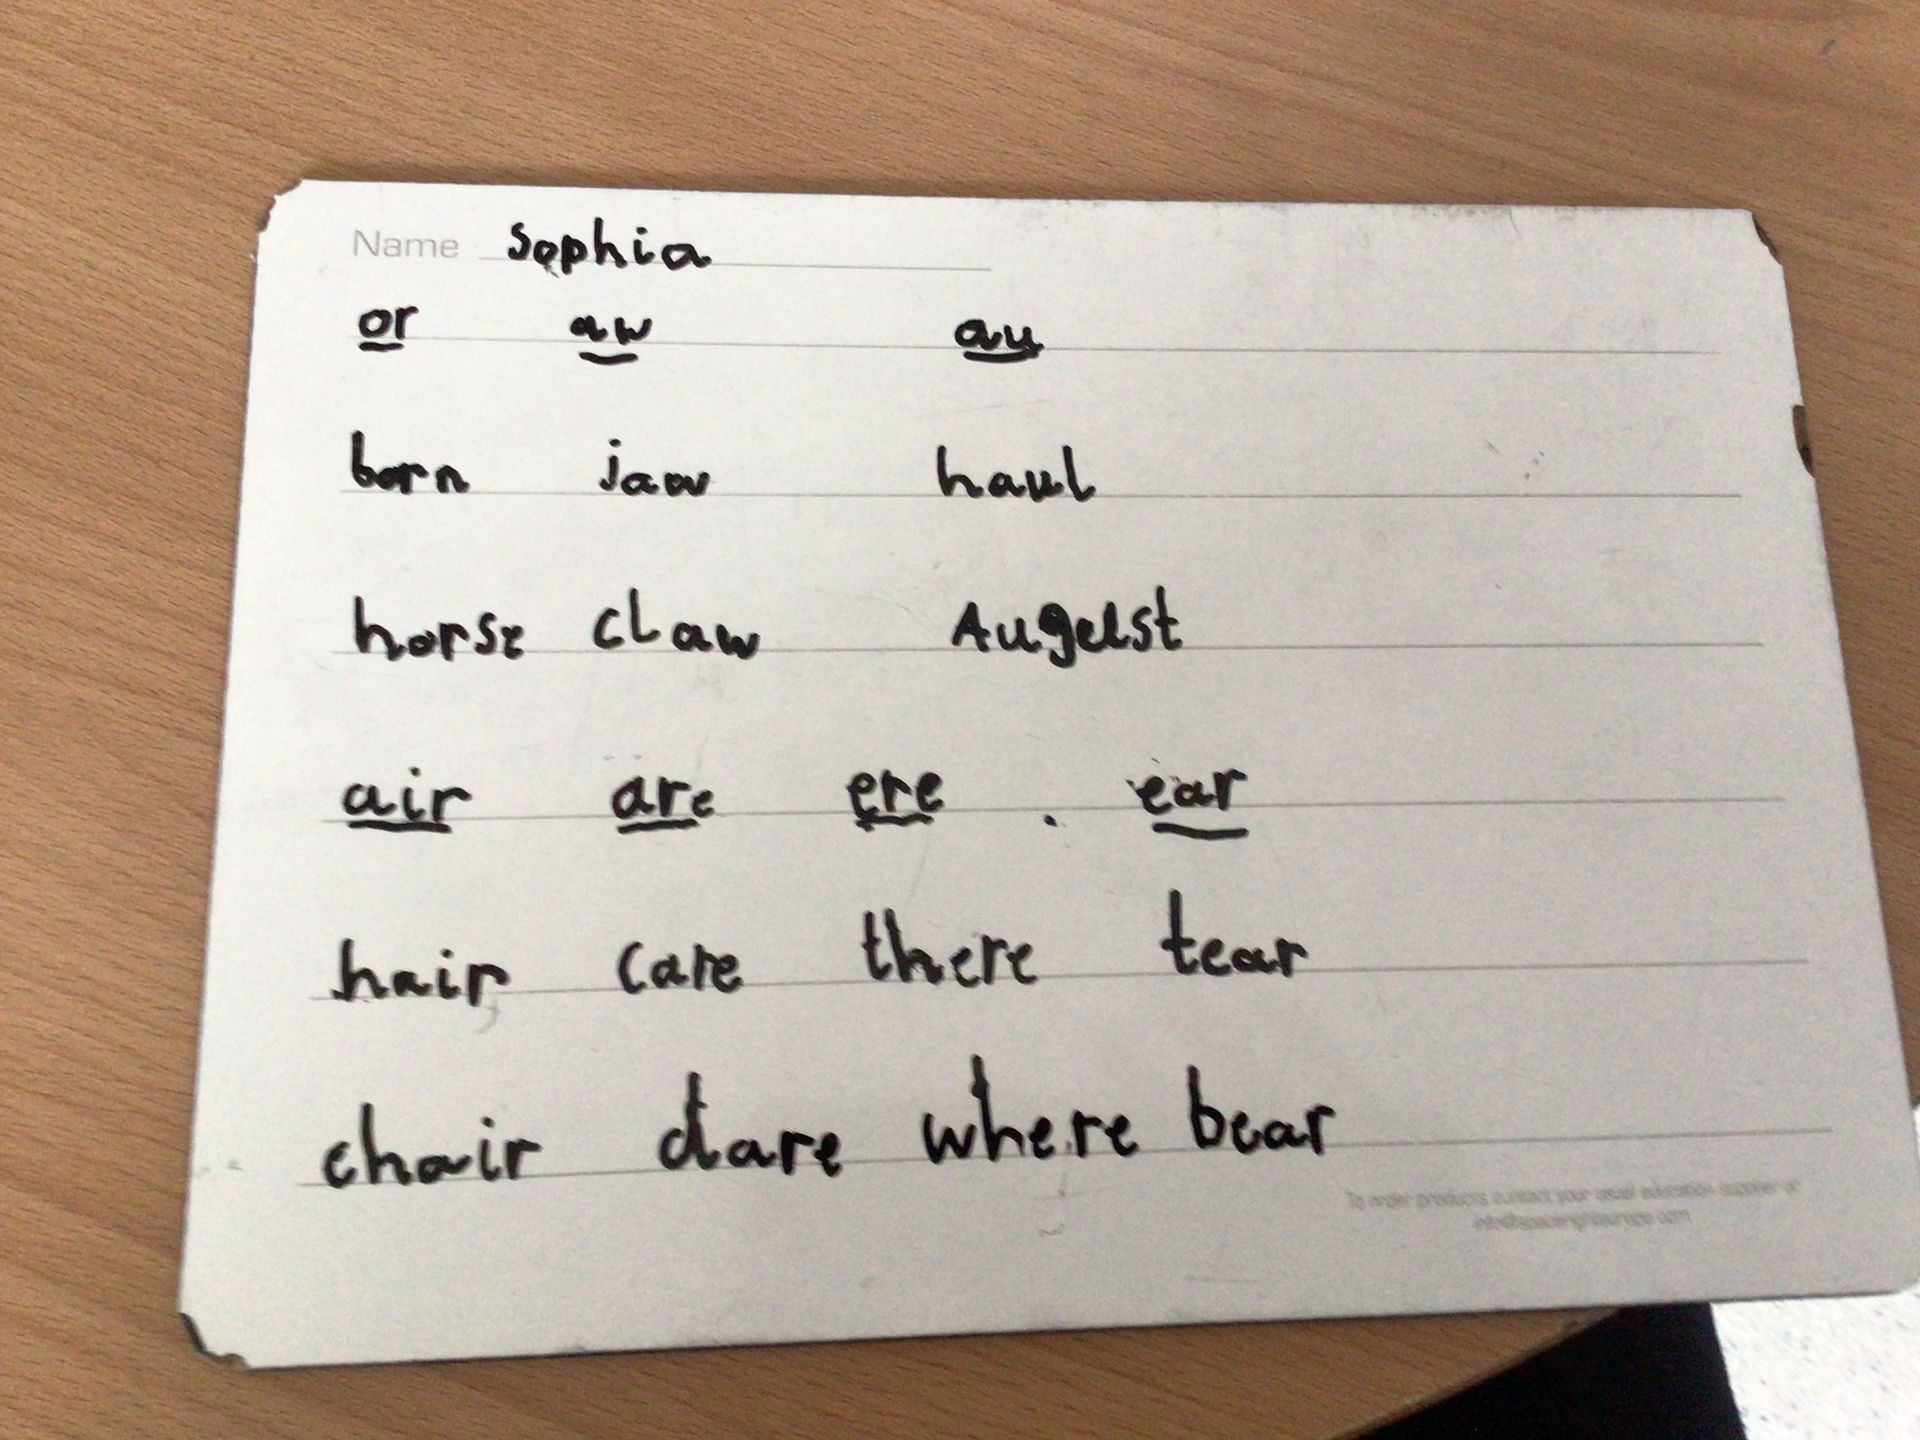 Name Sophia
or aw au
born jaw haul
horse claw Augelst
air are ere . ear
hair care there tear
chair dare where bear
To order products contact your usual education supplier or